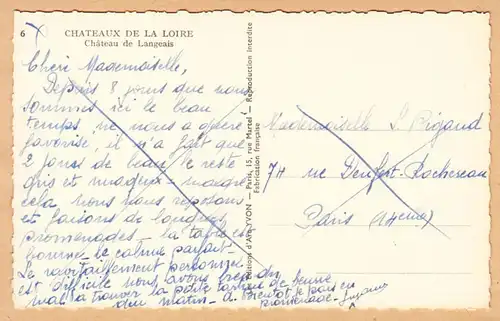 6
CHATEAUX DE LA LOIRE
Château de Langeais
Chère Mademoiselle,
Depuis 8 jours que nous
sommes ici le beau
temps, ne nous a guère
favorisé, il n'a fait que
2 jours de beau, le reste
gris et
cela nous nous reposons
et faisons de longues
promenades — la table est
bonne, le calme parfait —
Le ravitaillement
est difficile nous avons
mal à trouver la petite de beurre
du matin — A Bientôt je pars en
promenade.
Editions d'Art YVON — Paris, 15, rue Martel — Reproduction interdite
Fabrication française
Mademoiselle S. Rigaud
7H rue Denfert-Rochereau
Paris (14ème)